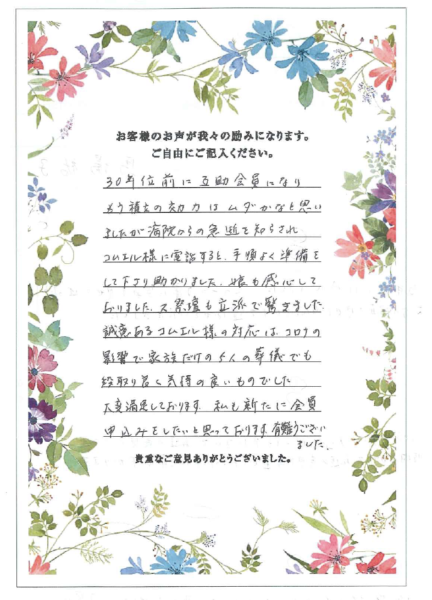 お客様のお声が我々の励みになります。
ご自由にご記入ください。
30年位前に互助会員になり
もう預金の効力はムダかなと思い
ましたが病院からの急逝を知らされ
コムエル様に電話すると、手順よく準備を
して下さり助かりました、娘も感心して
おりました、又祭壇も立派で驚きました
誠意あるコムエル様の対応は、コロナの
影響で家族だけの5人の葬儀でも
段取り良く気持の良いものでした
大変満足しております 私も新たに会員
申込みをしたいと思っております。有難うござい
ました。
貴重なご意見ありがとうございました。